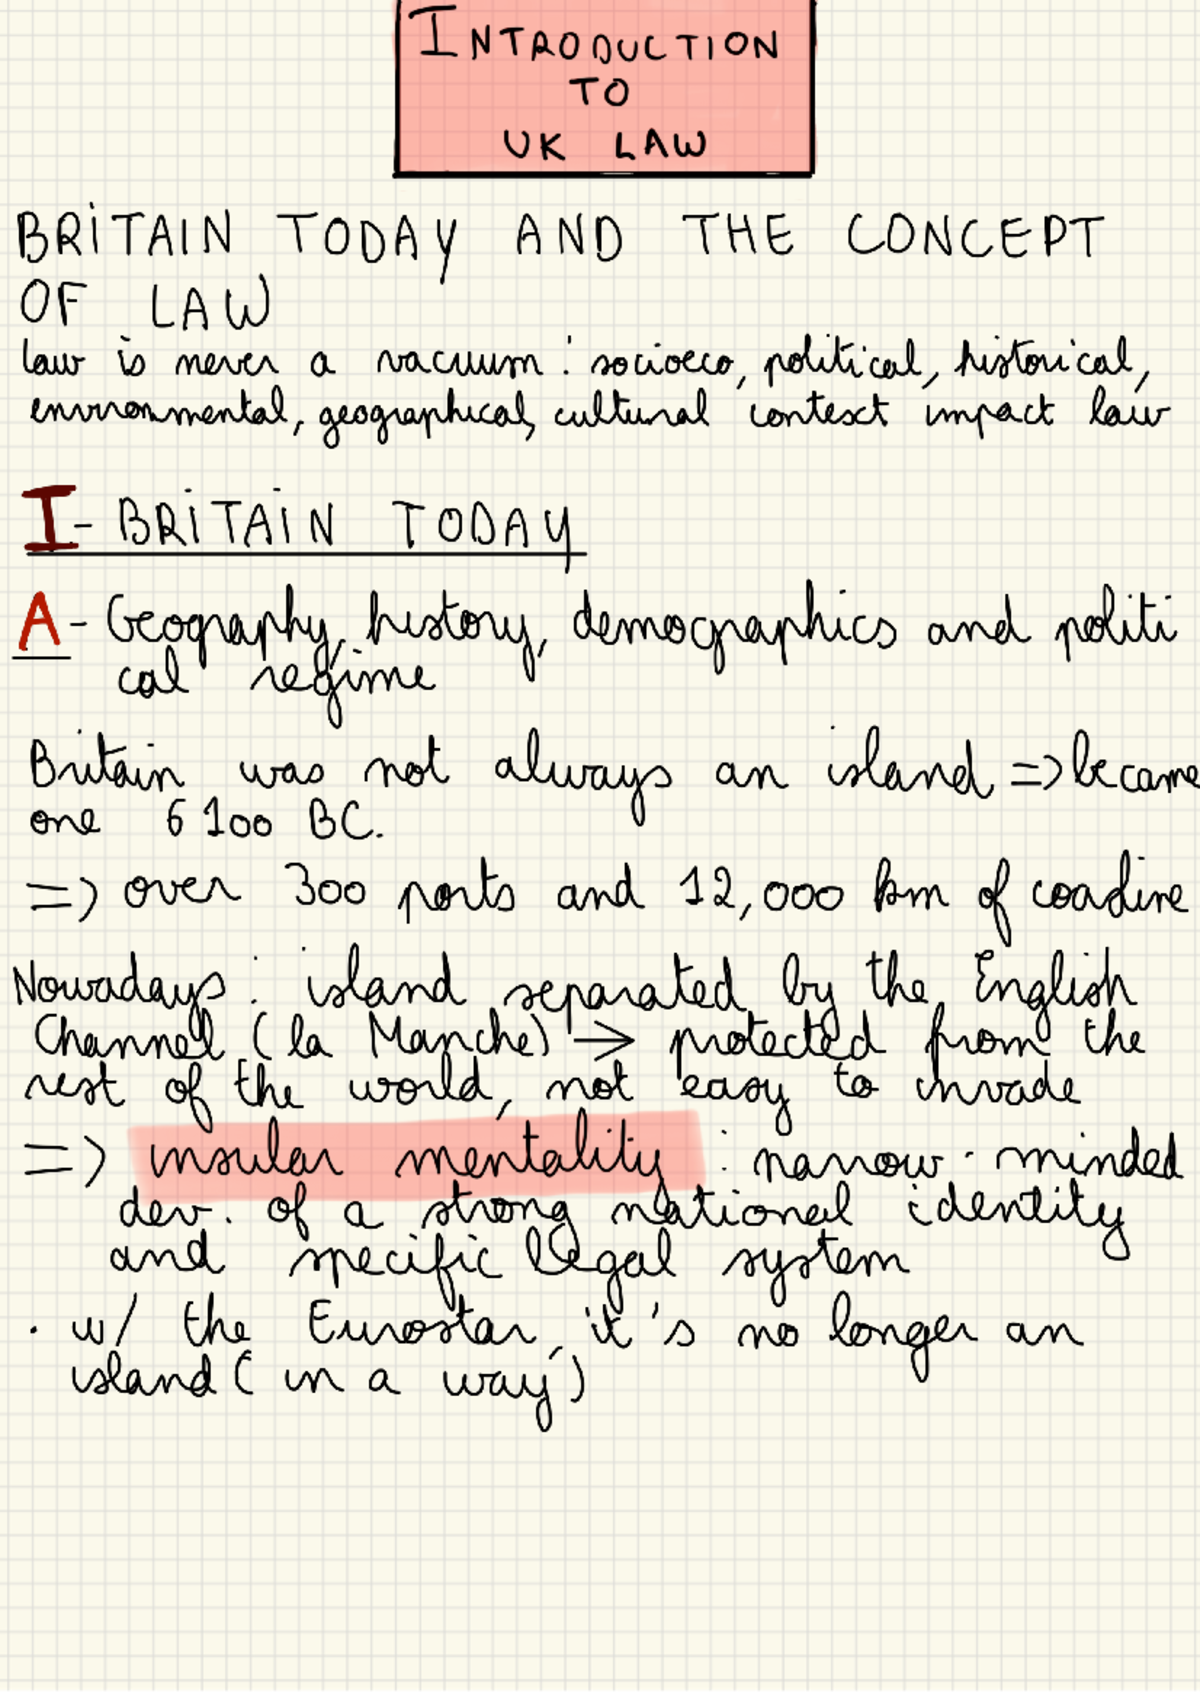 INTRODUCTION
TO
UK LAW
BRITAIN TODAY AND THE CONCEPT
OF LAW
law is never a vacuum : socioeco, political, historical,
environmental, geographical, cultural context impact law
I- BRITAIN TODAY
A- Geography, history, demographics and politi
cal regime
Britain was not always an island => became
one 6 100 BC.
=> over 300 ports and 12,000 km of coastline
Nowadays : island separated by the English
Channel (la Manche) → protected from the
rest of the world, not easy to invade
=> insular mentality : narrow-minded
dev. of a strong national identity
and specific legal system
· w/ the Eurostar, it's no longer an
island (in a way)